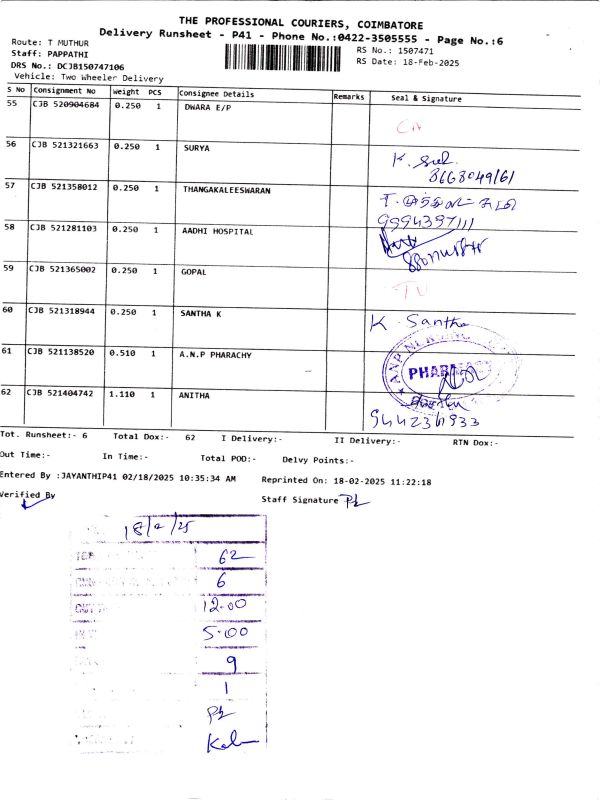 THE PROFESSIONAL COURIERS, COIMBATORE
Delivery Runsheet - P41 - Phone No.:0422-3505555 - Page No.:6
Route: T MUTHUR
Staff: PAPPATHI
DRS No.: DCJB150747106
Vehicle: Two Wheeler Delivery
RS No.: 1507471
RS Date: 18-Feb-2025
S No Consignment No Weight PCS Consignee Details Remarks Seal & Signature
55 CJB 520904684 0.250 1 DWARA E/P
56 CJB 521321663 0.250 1 SURYA K.
8668049161
57 CJB 521358012 0.250 1 THANGAKALEESWARAN
9994397111
58 CJB 521281103 0.250 1 AADHI HOSPITAL
59 CJB 521365002 0.250 1 GOPAL
60 CJB 521318944 0.250 1 SANTHA K K. Santha
61 CJB 521138520 0.510 1 A.N.P PHARACHY PHARMACY
62 CJB 521404742 1.110 1 ANITHA
Tot. Runsheet:- 6 Total Dox:- 62 I Delivery:- II Delivery:- RTN Dox:-
Out Time:- In Time:- Total POD:- Delvy Points:-
Entered By :JAYANTHIP41 02/18/2025 10:35:34 AM Reprinted On: 18-02-2025 11:22:18
Verified By Staff Signature
18/2/25
62
6
12.00
5.00
9
1